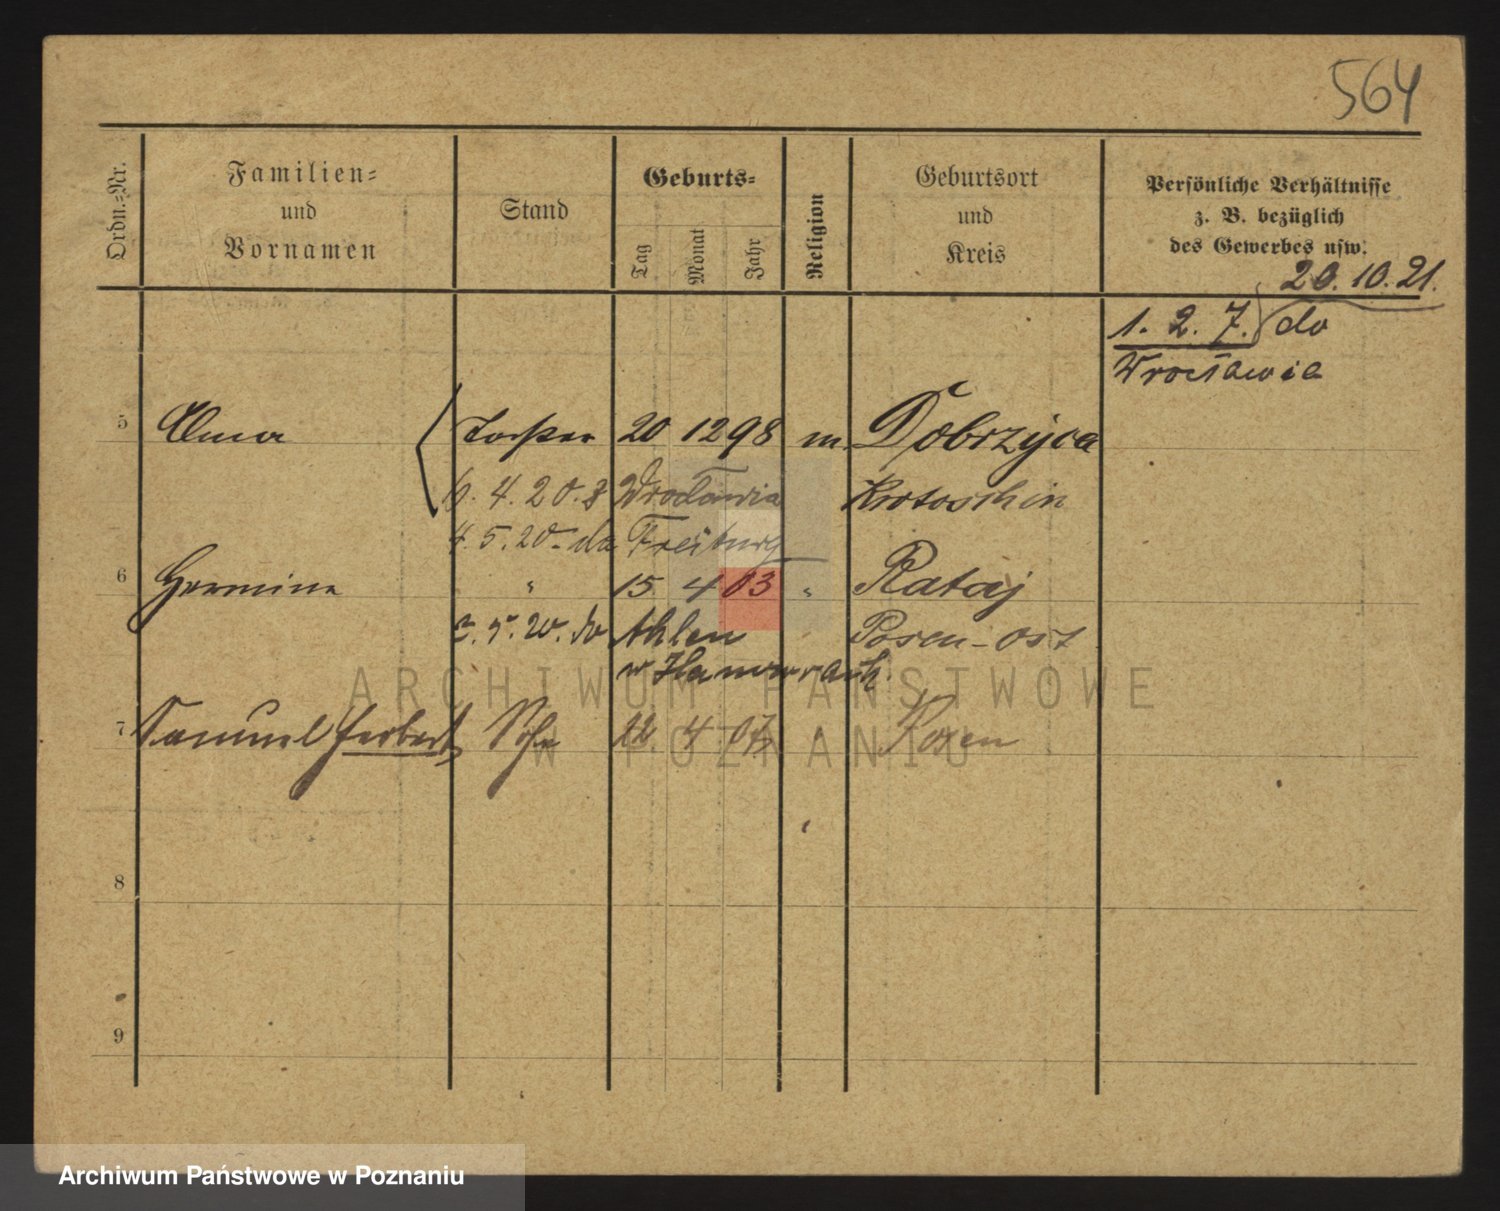 564
Ordn.-Nr.
Familien-
und
Vornamen
Stand
Geburts-
Tag
Monat
Jahr
Religion
Geburtsort
und
Kreis
Persönliche Verhältnisse
z. B. bezüglich
des Gewerbes usw.
20. 10. 21.
1. 2. 7. do
Wrocławia
5 20 12 98 m. Dobrzyca
4. 20. z Wrocławia Krotoschin
5. 20. do Freiburg
6 Hermine " 15 4 03 " Rataj
20. do Ahlen Posen-Ost
w
7 Samuel Herbert Sohn 22 4 07 " Posen
8
9
ARCHIWUM PAŃSTWOWE
W POZNANIU
Archiwum Państwowe w Poznaniu